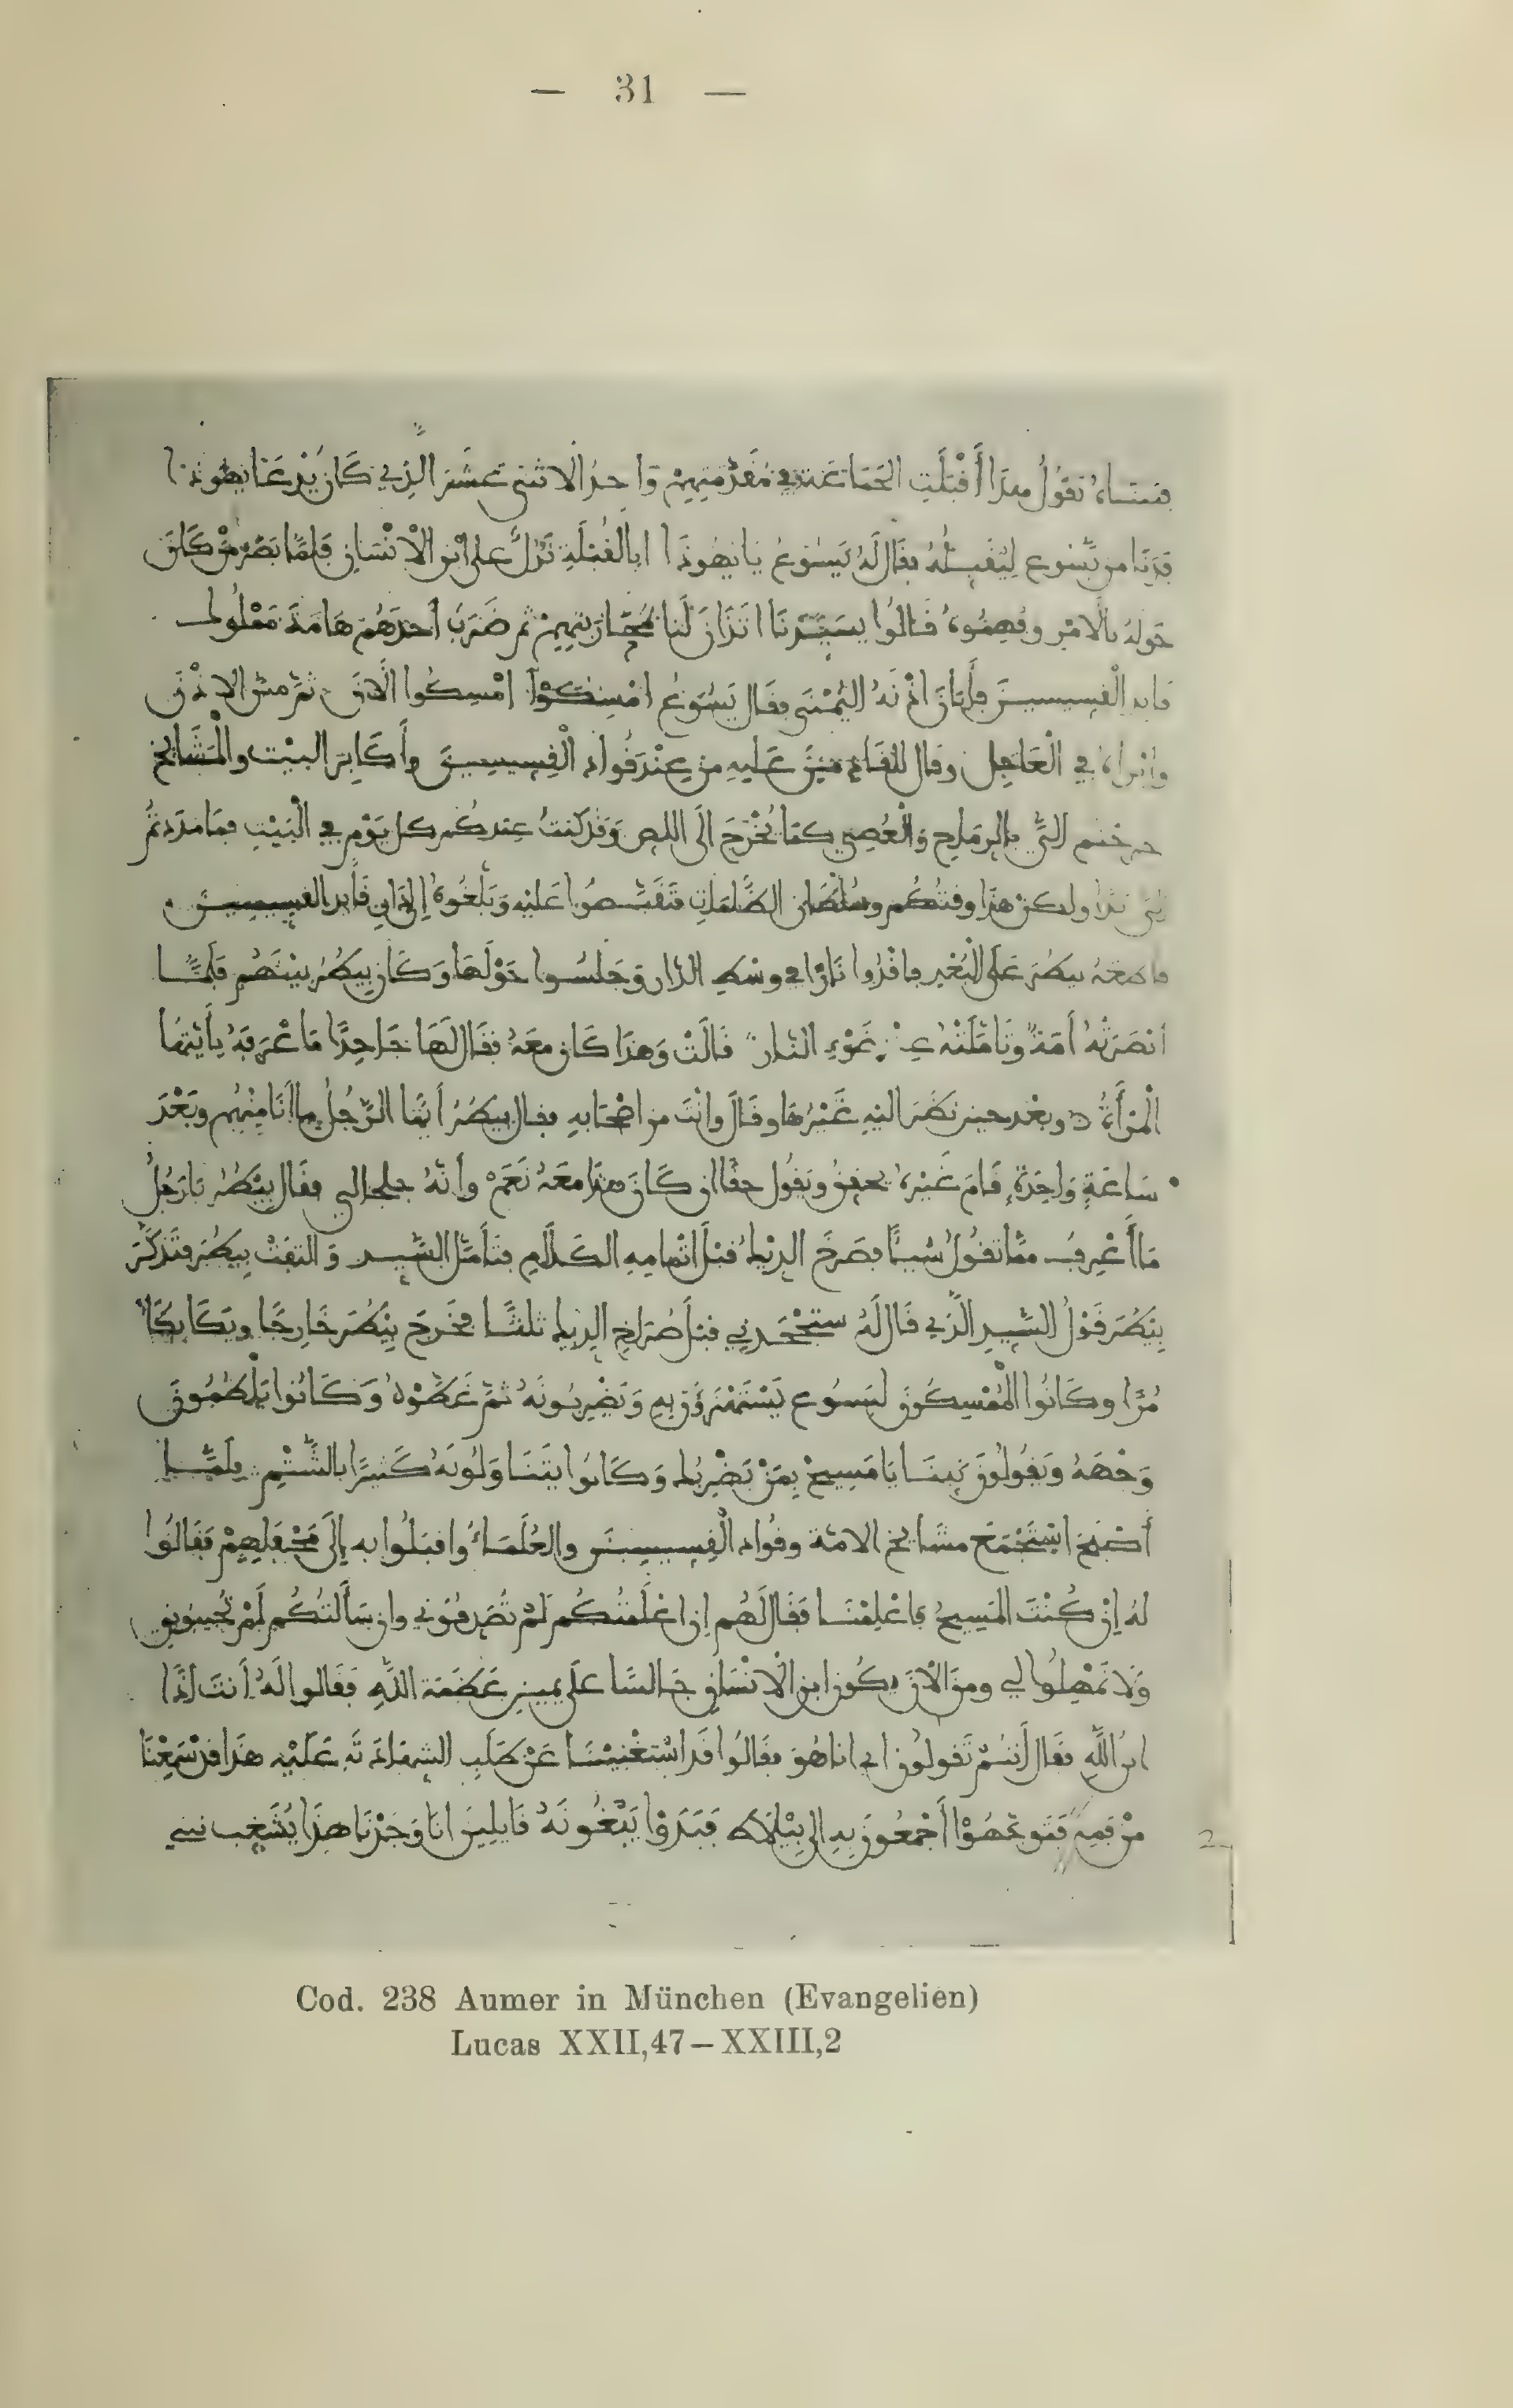 — 31 —
يقول هذا أَقْبَلَتِ الجَمَاعَة وفي مُقَدِّمَتِهِمْ وَاحدُ الاثني عَشَر الذِي كَانَ يُدعَا يهُوذا
فَدَنَا من يَسُوع لِيُقَبِّلُهُ فقَالَ لَهُ يَسُوعُ يَا يهُوذَا ابالقُبْلَةِ تَدُلُّ على ابْنِ الْانْسَانِ فَلمَّا بَصُرَ مَنْ كَانَ
حَولهُ بالامْرِ وفهِمُوهُ قَالوُا يسَيِّدنَا اتَذَانَ لَنا ثم ضَرَبَ أحدَهُمْ هَامَةَ مَمْلُوك
قايد الْقسِيسِينَ فأَبَانَ اذْنَهُ اليُمْنَى فقَال يَسُوعُ امْسِكُوا الَانَ ثمَّ مسّ الاذْنَ
وابْراهُ في الْعَاجِل وقال للقَادِمِينَ عَلَيهِ من عِنْد قُوادِ الْقِسِيسِينَ وأَكَابِرَ البيْت والْمَشَايخ
بالرمَاحِ وَالْعُصِيِّ كمَا يُخْرَجَ الَى اللص وَقَد كنتُ عِندكُم كل يَوْمٍ في الْبَيْتِ فمَا مدَدتُمْ
ولكنْ هذَا وقتُكُم وسُلْطَان الظُّلمَاتِ فتَقَبَّصُوا عَلَيْهِ وَبَلَغُوهُ إِلى دَارِ قَايد القسيسين
بيطُرَ عَلَى الْبُعْدِ فاقَدُوا نَارًا في وسْطِ الدَّار وَجَلسُوا حَوْلَهَا وَكَانَ بِيطُرُ بيْنَهُم فَلمَّا
أبْصَرَتْهُ أمَةٌ وتَامَلَتْهُ عِنْدَ ضَوْءِ النَّار قَالَتْ وَهذَا كَانَ معَهُ فقَال لَهَا جَاحِدًا مَا عْرَفهُ يأَيتهَا
الْمَرْأَةُ وبعْد حين نَظَرَ اليْهِ غَيْرُهَا وقَالَ وانْتَ من اصْحَابهِ فقال بِيطُرُ أيهَا الرَّجُلُ ما أنَا مِنْهُم وبَعْدَ
سَاعَةٍ وَاحِدَةٍ قَامَ غَيْرهُ يحققُ ويَقُول حقًا ان كَانَ هذَا معَهُ نَعَمْ وأنهُ جلجالي فقَال بِيطُر يَا رَجُلُ
مَا أَعْرِفُ مَمَّا تقُولُ شَيئًا فصَرخَ الديْك قبْلَ اتْمامِهِ الكَلَامِ فتَأَمَّل السَّيد وَالتفَتْ بِيطُرَ فتَذكَّرَ
بِيطُرَ قَوْلُ السَّيدِ الَّذِي قَال لَهُ ستجْحَدنِي قبْل صُرَاخِ الدِيك ثلثًا فخَرجَ بِيْطُر خَارِجًا وبَكَا بكَا
مُرًّا وكَانُوا الْمُمْسِكُونَ ليَسُوع يَسْتَهْزِؤُنَ بِهِ وَيَضْرِبُونَهُ ثمَّ غَطَّوْهُ وَكَانُوا يَلْطُمُونَ
وَجْهَهُ وَيَقُولُونَ نَبِينَا يَا مَسِيحْ بِمَنْ يَضْرِبُك وَكَانوُا يتَنَاوَلُونَهُ كَثيرًا بالشَّتْمِ فلَمَّا
أصْبَحَ اسْتَجْمَعَ مشَايخ الامَّة وقُواد الْقِسِيسِينَ والعُلَمَاءُ واقبَلُوا به إِلَى مَحْفَلِهِمْ فقَالُوا
لهُ إِنْ كُنْتَ المَسِيحُ فاعْلِمْنَا فقَال لَهُم إن اعْلَمْتُكُم لَمْ تُصَدِقُونِي وان سَأَلتُكُم لَمْ تُجيبونِي
وَلَا تُمْهِلُوا لي ومنَ الْانَ يكُون ابن الْانْسَانِ جَالسًا عَلَى يمين عَظَمَة اللَّهِ فَقَالوا لَهُ أنتَ إذًا
ابنُ اللَّهِ فقَال أنتُمْ تَقولوُن اني اناهُوَ فقَالُوا قَد اسْتغْنيْنَا عَنْ طَلَبِ الشهَادَة عَلَيْهِ هَذا قدْ سَمِعْنَا
مِنْ فمِهِ أَجْمعُون بهِ الى بِيْلَاطُه فبَدَوْا يَبْغُونَهُ قَايلِينَ انا وَجَدْنَا هذَا يُشَغِب
Cod. 238 Aumer in München (Evangelien)
Lucas XXII,47–XXIII,2